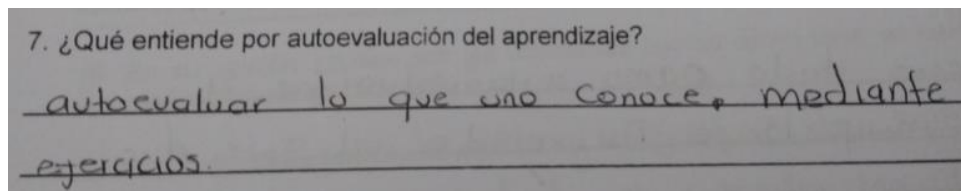 7. ¿Qué entiende por autoevaluación del aprendizaje?
autoevaluar lo que uno conoce, mediante
ejercicios.